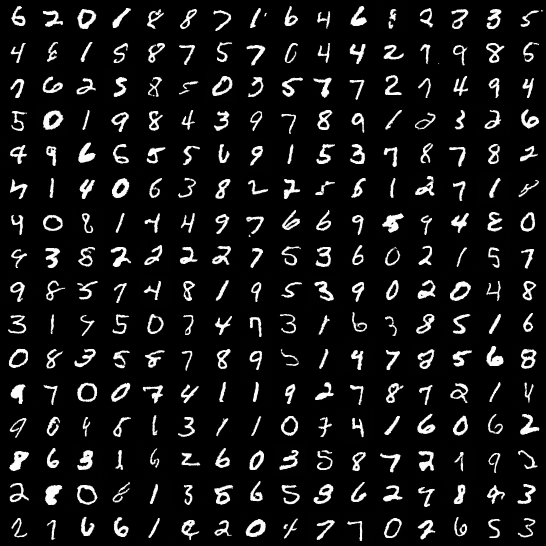 6 2 0 1 8 8 7 1 6 4 6 8 2 3 3 5
4 6 1 5 8 7 5 7 0 4 4 2 7 9 8 6
7 6 2 5 8 5 0 3 5 7 7 2 7 4 9 4
5 0 1 9 8 4 3 9 7 8 9 1 2 3 2 6
4 9 6 6 5 5 6 9 1 5 3 7 8 7 8 2
5 1 4 0 6 3 8 2 2 5 6 1 2 7 1 8
4 0 8 1 4 4 9 7 6 6 9 5 9 4 8 0
9 3 8 2 2 2 2 7 5 3 6 0 2 1 5 7
9 8 5 7 4 8 1 9 5 3 9 0 2 0 4 8
3 1 9 5 0 3 4 7 3 1 6 3 8 5 1 6
0 8 3 5 8 7 8 9 5 1 4 7 8 5 6 8
9 7 0 0 7 4 1 1 9 2 7 8 7 2 1 4
9 0 4 8 1 3 1 1 0 7 4 1 6 0 6 2
8 6 3 1 6 2 6 0 3 5 8 7 2 1 9 2
2 8 0 8 1 3 8 6 5 9 6 2 9 8 4 3
2 7 6 6 1 2 2 0 4 7 7 0 2 6 5 3